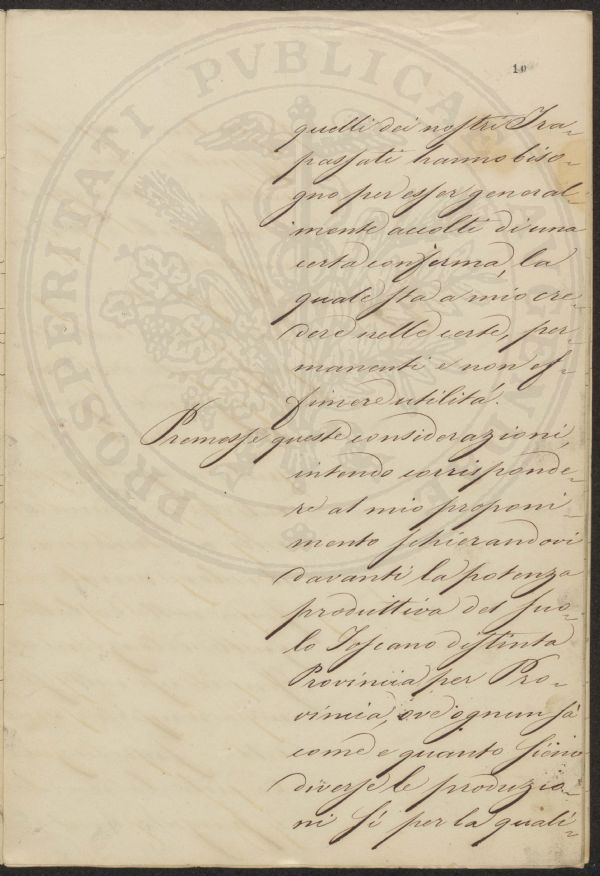 10
quelli dei nostri Tra-
passati hanno biso-
gno per esser general-
mente accolti di una
certa conferma, la
quale sta a mio cre-
dere nelle certe, per-
manenti e non ef-
fimere utilità.
Premesse queste considerazioni,
intendo corrisponde-
re al mio proponi-
mento schierandovi
davanti la potenza
produttiva del suo-
lo Toscano distinta
Provincia per Pro-
vincia, ove ognun sà
come e quanto sieno
diverse le produzio-
ni sì per la quali-
PROSPERITATI PVBLICAE